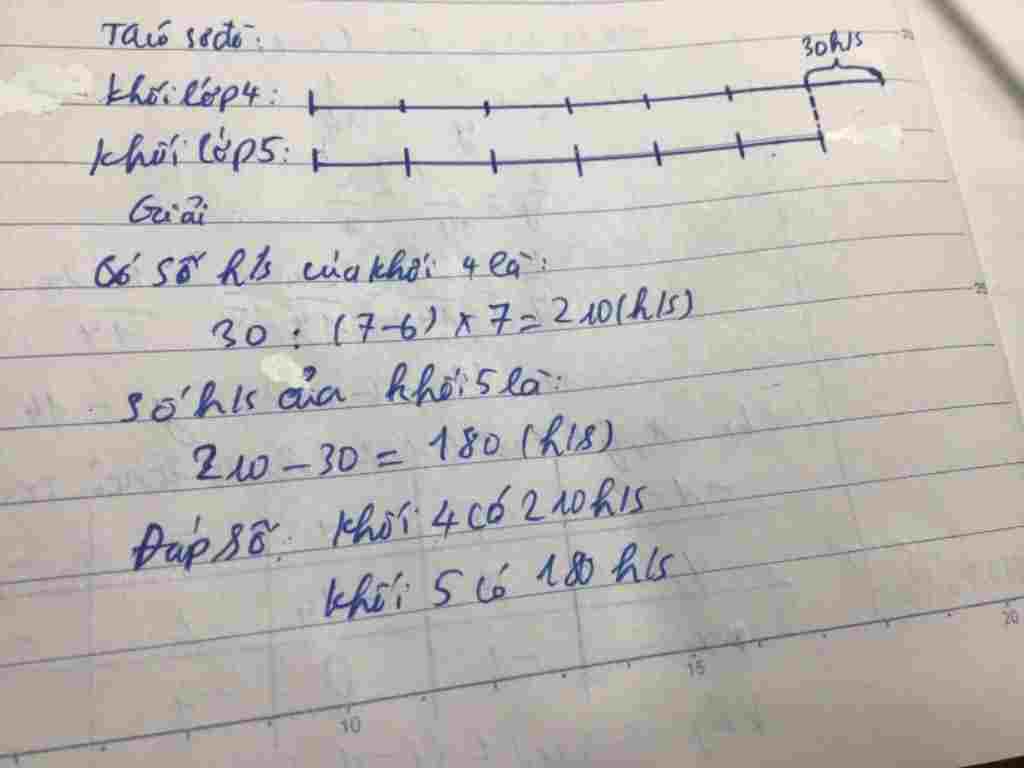 Ta có sơ đồ:
30h/s
Khối lớp 4:
Khối lớp 5:
Giải
Có số h/s của khối 4 là:
30 : (7-6) x 7 = 210 (h/s)
Số h/s của khối 5 là:
210 - 30 = 180 (h/s)
Đáp số: Khối 4 có 210 h/s
Khối 5 có 180 h/s
10
15
20
25